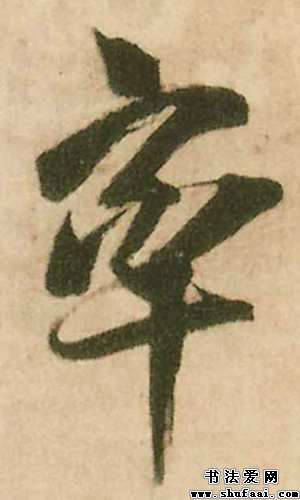 率
书法爱网
www.shufaai.com